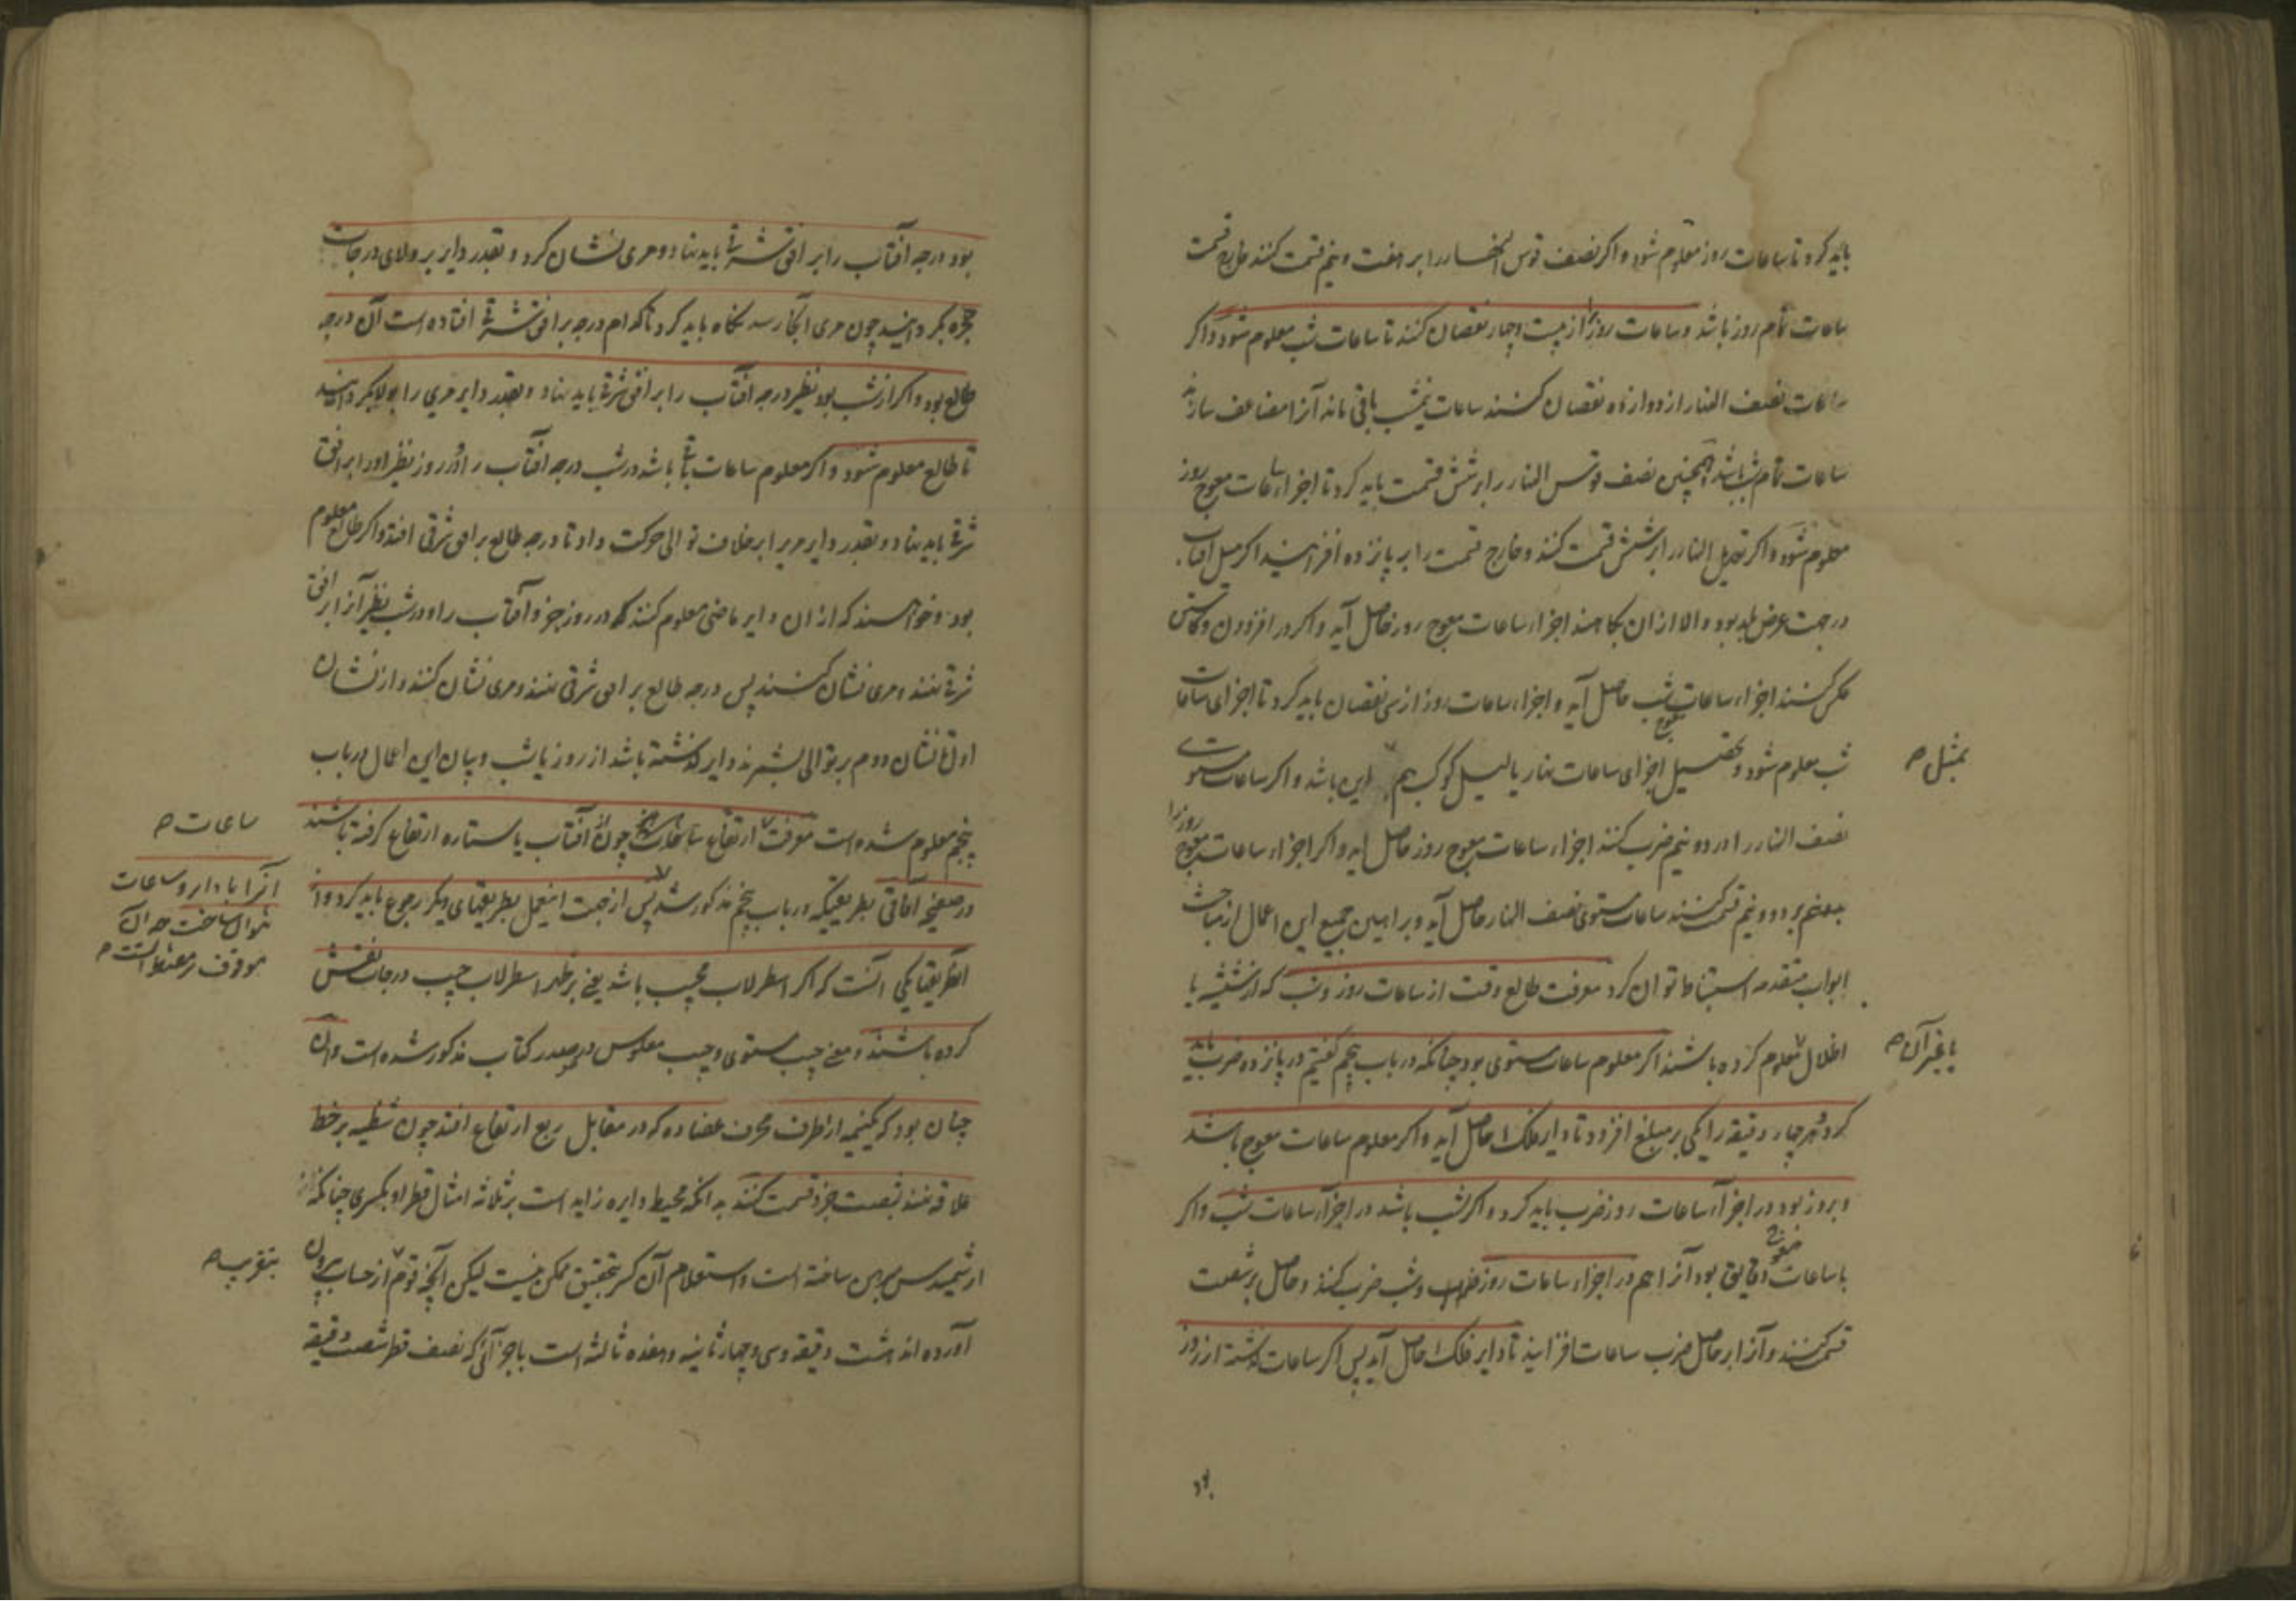 باید کرد تا ساعات روز معلوم شود و اگر نصف قوس النهار را بر هفت و نیم قسمت کنند خارج قسمت
ساعات تمام روز باشد و ساعات روز را از بیست و چهار نقصان کنند تا ساعات شب معلوم شود و اگر
ساعات نصف النهار از دوازده نقصان کنند ساعات نیم شب باقی ماند آنرا مضاعف سازند
ساعات تمام شب باشد همچنین نصف قوس النهار را بر شش قسمت باید کرد تا اجزاء ساعات معوج روز
معلوم شود و اگر تعدیل النهار را بر شش قسمت کنند و خارج قسمت را بر پانزده افزایند اگر میل آفتاب
در جهت عرض بلد بود و الا از ان بکاهند اجزاء ساعات معوج روز حاصل آید و اگر در افزودن و کاستن
عکس کنند اجزاء ساعات معوج شب حاصل آید و اجزاء ساعات روز از سی نقصان باید کرد تا اجزای ساعات
شب معلوم شود و تحصیل اجزای ساعات نهار یا لیل کوکب هم این باشد و اگر ساعات مستوی
بمثل صح
نصف النهار را در دو نیم ضرب کنند اجزاء ساعات معوج روز حاصل آید و اگر اجزاء ساعات معوج روز را
بر دو و نیم قسمت کنند ساعات مستوی نصف النهار حاصل آید و براهین جمیع این اعمال از مباحث
ابواب متقدمه استنباط توان کرد معرفت طالع وقت از ساعات روز و شب که از شیشه یا
اظلال معلوم کرده باشند اگر معلوم ساعات مستوی بود چنانکه در باب پنجم گفتیم در پانزده ضرب باید
یا غیر آن صح
کرد و هر چهار دقیقه را یکی بر مبلغ افزود تا دایر فلک حاصل آید و اگر معلوم ساعات معوج باشند
و بروز بود در اجزاء ساعات روز ضرب باید کرد و اگر بشب باشد در اجزاء ساعات شب و اگر
با ساعات معوج دقایق بود آنرا هم در اجزاء ساعات روز و شب ضرب کنند و حاصل بر شصت
قسمت کنند و آنرا بر حاصل ضرب ساعات افزایند تا دایر فلک حاصل آید پس اگر ساعات گذشته از روز
بود
بود درجه آفتاب را بر افق شرقی باید نهاد و مری نشان کرد و بقدر دایر بر ولای درجات
حجره بگردانند چون مری آنجا رسد نگاه باید کرد تا کدام درجه بر افق شرقی افتاده است آن درجه
طالع بود و اگر از شب بود نظیر درجه آفتاب را بر افق شرقی باید نهاد و بقدر دایر مری را بر ولا بگردانند
تا طالع معلوم شود و اگر معلوم ساعات باقی باشد در شب درجه آفتاب را و در روز نظیر او را بر افق
شرقی باید نهاد و بقدر دایر مری را بر خلاف توالی حرکت داد تا درجه طالع بر افق شرقی افتد و اگر طالع معلوم
بود و خواهند که از ان دایر ماضی معلوم کنند در روز جزو آفتاب را و در شب نظیر آنرا بر افق
شرقی نهند و مری نشان کنند پس درجه طالع بر افق شرقی نهند و مری نشان کنند و از نشان
اول تا نشان دوم بر توالی بشمرند دایر گذشته باشد از روز یا شب و بیان این اعمال در باب
پنجم معلوم شده است معرفت ارتفاع چون آفتاب یا ستاره ارتفاع گرفته باشند
ساعات صح
در صفیحه آفاقی بطریقیکه در باب پنجم مذکور شد پس از جهت این عمل بطریقهای دیگر رجوع باید کرد و از
آنرا با دایر و ساعات
موقوف
آن طریقها یکی آنست که اگر اسطرلاب مجیب باشد یعنی بر ظهر اسطرلاب جیب درجات نقش
کرده باشند و معنی جیب مستوی و جیب معکوس در صدر کتاب مذکور شده است و آن
چنان بود که یک نیمه از طرف محرف عضاده که در مقابل ربع ارتفاع افتد چون شظیه بر خط
علاقه نهند بشصت جزو قسمت کنند بدانکه محیط دایره زاید است بر ثلاثه امثال قطر او بکسری چنانکه
ارشمیدس مبرهن ساخته است و استعلام آن کسر بتحقیق ممکن نیست لیکن آنچه قوم از حساب بیرون
بتقریب صح
آورده اند هشت دقیقه و سی و چهار ثانیه و هفده ثالثه است باجزائی که نصف قطر شصت دقیقه